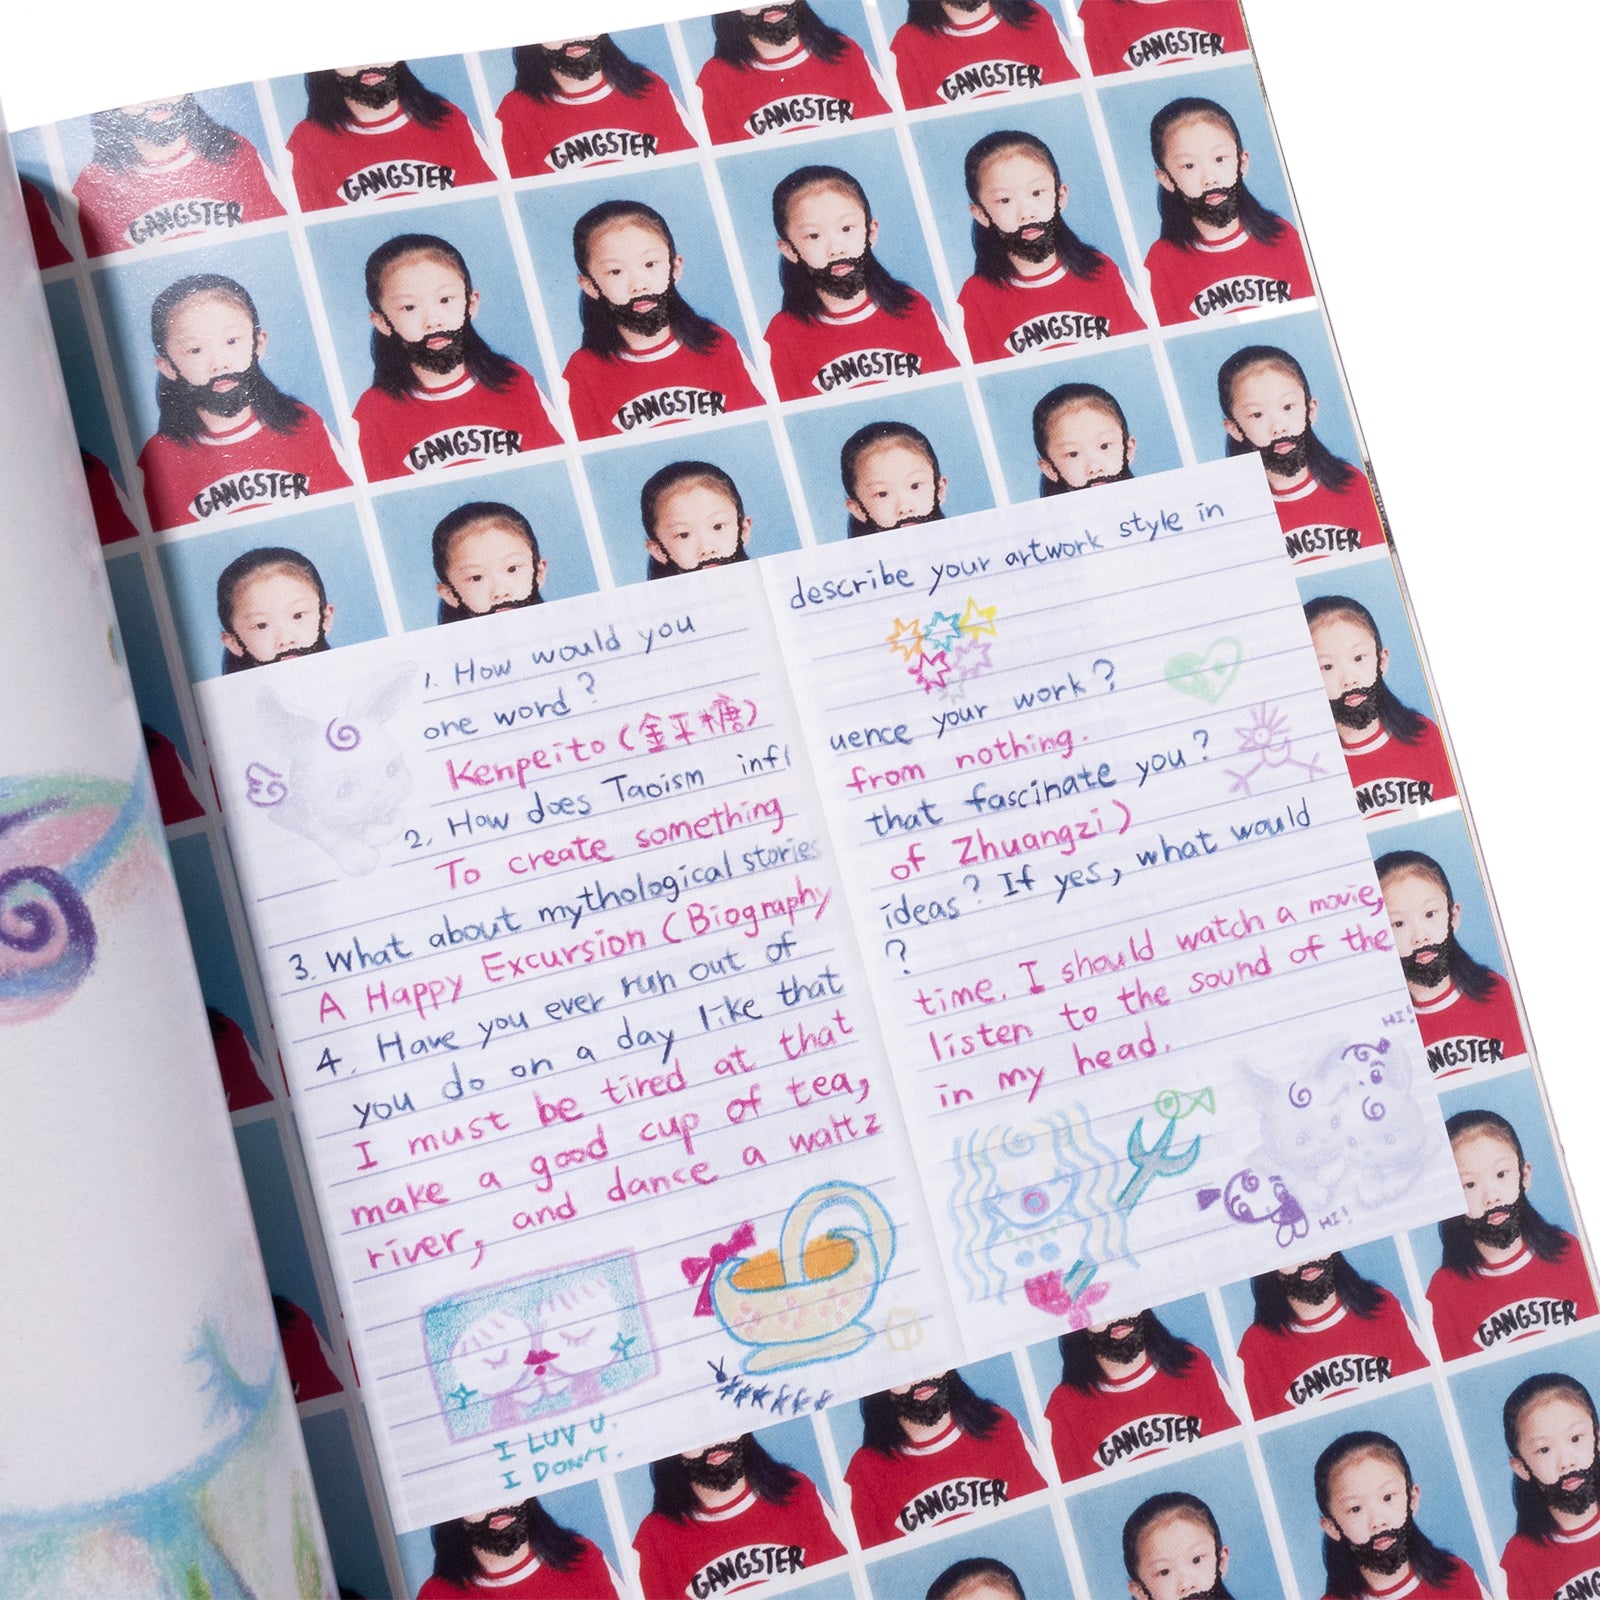 GANGSTER
GANGSTER
GANGSTER
GANGSTER
GANGSTER
GANGSTER
GANGSTER
GANGSTER
GANGSTER
GANGSTER
GANGSTER
GANGSTER
NGSTER
NGSTER
NGSTER
1. How would you describe your artwork style in
one word?
Kenpeito (金平糖)
2. How does Taoism influence your work?
To create something from nothing.
3. What about mythological stories that fascinate you?
A Happy Excursion (Biography of Zhuangzi)
4. Have you ever run out of ideas? If yes, what would
you do on a day like that ?
I must be tired at that time. I should watch a movie,
make a good cup of tea, listen to the sound of the
river, and dance a waltz in my head.
HI!
HI!
I LUV U.
I DON'T.
GANGSTER
GANGSTER
GANGSTER
GANGSTER
GANGSTER